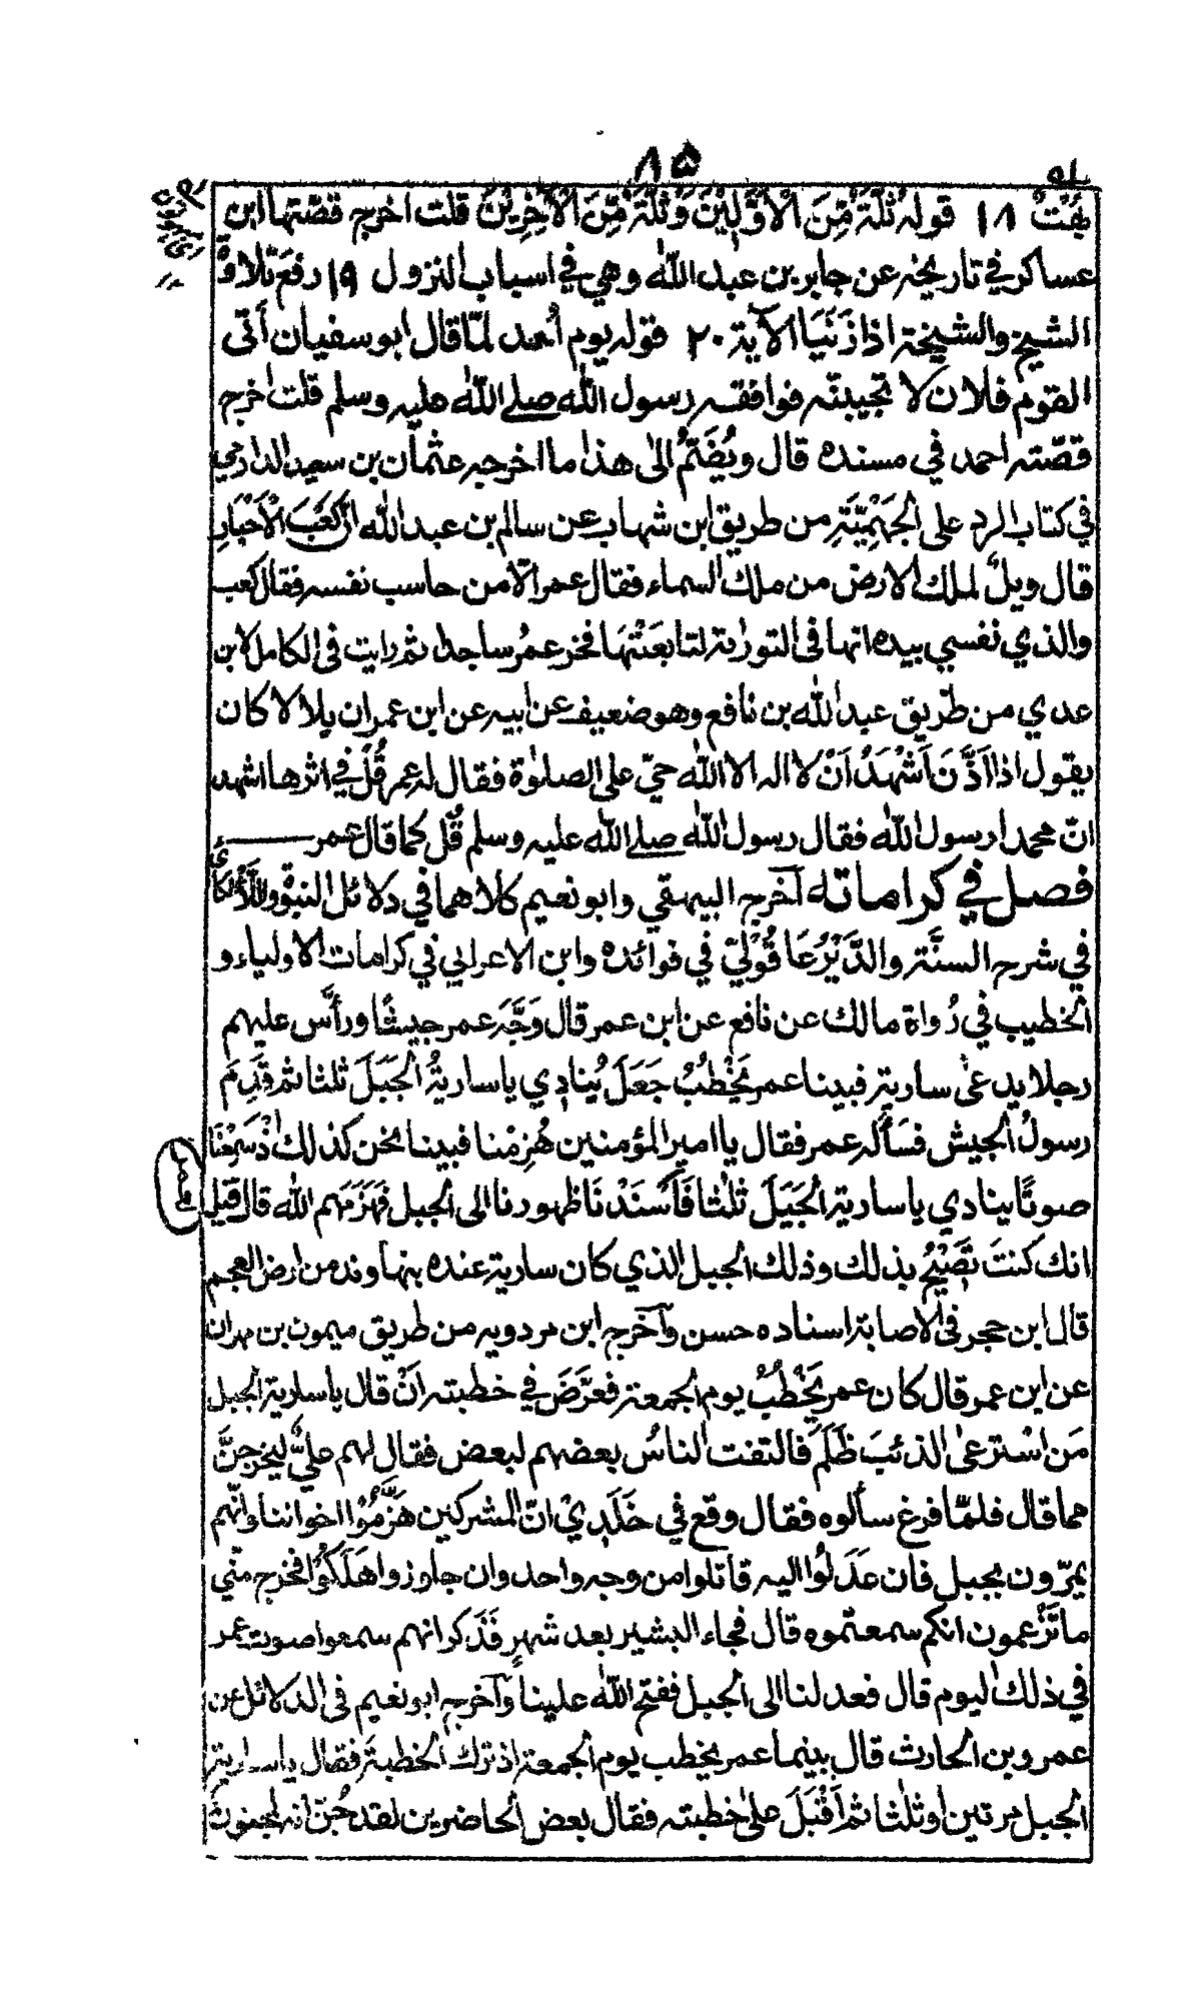 ٨۵
بُهُتٌ ١٨ قوله ثُلَّةٌ مِّنَ الْاَوَّلِيْنَ وَثُلَّةٌ مِّنَ الْاٰخِرِيْنَ قلت اخرج قصّتها ابن
عساكر في تاريخه عن جابر بن عبد الله وهي في اسباب النزول ١٩ رفع تلاوة
الشيخ والشيخة اذا زَنَيَا الآية ٢٠ قوله يوم اُحد لمّا قال ابو سفيان أفي
القوم فلان لا تجيبنّه فوافقه رسول الله صلے الله عليه وسلم قلت اخرج
قصّته احمد في مسنده قال ويُضَمُّ الى هذا ما اخرجه عثمان بن سعيد الدارمي
في كتاب الرد على الجَهْمِيَّةِ من طريق ابن شهاب عن سالم بن عبد الله انّ كَعْبَ الْاَحْبَارِ
قال ويلٌ لملك الارض من ملك السماء فقال عمر الّا من حاسب نفسه فقال كعب
والذي نفسي بيده انها فى التورٰىة لتابعتْهَا فخر عمرُ ساجدا ثم رايت فى الكامل لابن
عدي من طريق عبد الله بن نافع وهو ضعيف عن ابيه عن ابن عمر ان بلالا كان
يقول اذا اَذَّنَ اَشْهَدُ اَنْ لا اله الا الله حيّ على الصلوٰة فقال له عمر قُلْ في اثرها اشهد
انّ محمدا رسول الله فقال رسول الله صلے الله عليه وسلم قُل كما قال عمر
فصل في كراماته اَخرج البيهقي وابو نعيم كلاهما في دلائل النبوّة واللَّالْكَائِي
في شرح السنّة والدَّيْرُعَاقُوْلِيّ في فوائده وابن الاعرابي في كرامات الاولياء و
الخطيب في رُواة مالك عن نافع عن ابن عمر قال وَجَّهَ عمر جيشًا ورأَّس عليهم
رجلا يدعىٰ سارية فبينا عمر يَخْطُبُ جَعَلَ يُنادِي يا ساريةُ الْجَبَلَ ثلثا ثم قَدِمَ
رسولُ الجيش فسَأَله عمر فقال يا امير المؤمنين هُزِمْنا فبينا نحن كذلك اذْ سَمِعْنَا
صوتًا ينادي يا سارية الجَبَلَ ثلٰثا فَأَسْنَدْنَا ظهورنا الى الجبل فهَزَمَهم الله قال قيل لعمر
انك كنتَ تَصِيْحُ بذلك وذلك الجبل الذي كان سارية عنده بنهاوند من ارض العجم
قال ابن حجر فى الاصابة اسناده حسن وَاَخرج ابن مردويه من طريق ميمون بن مهران
عن ابن عمر قال كان عمر يَخْطُبُ يوم الجمعة فعَرَّضَ في خطبته اَنْ قال يا سارية الجبل
مَن اسْترعىٰ الذئبَ ظَلَمَ فالتفت الناسُ بعضهم لبعض فقال لهم عليٌّ ليخرجنَّ
مما قال فلمّا فرغ سألوه فقال وقع في خَلَدِيْ انّ المشركين هَزَمُوْا اخواننا وانّهم
يمرّون بجبل فان عَدَلُوا اليه قاتلوا من وجه واحد وان جاوزوا هَلَكُوْا فخرج منّي
ما تَزْعمون انكم سمعتموه قال فجاء البشير بعد شهرٍ فَذَكر انهم سمعوا صوت عمر
في ذلك اليوم قال فعدلنا الى الجبل ففتح الله علينا وَاَخرج ابو نعيم فى الدلائل عن
عمرو بن الحارث قال بينما عمر يخطب يوم الجمعة اذ ترك الخطبةَ فقال يا سارية
الجبل مرتين او ثلٰثا ثم اَقْبَلَ علىٰ خطبته فقال بعض الحاضرين لقد جُنَّ انه لمجنون